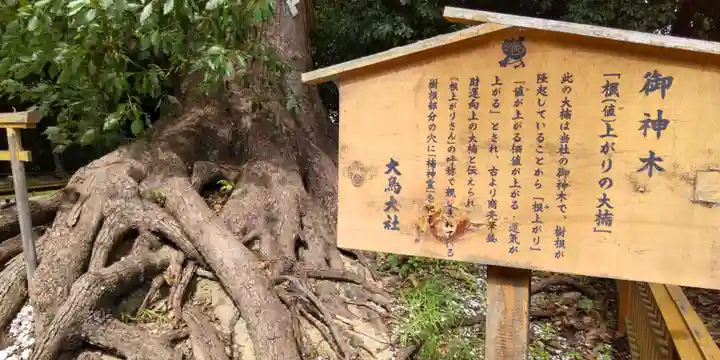 御神木
「根(値)上がりの大楠」
此の大楠は当社の御神木で、樹根が
隆起していることから「根上がり」
「値が上がる価値が上がる・運気が
上がる」とされ、古より商売繁盛
財運向上の大楠と伝えられ
「根上がりさん」の呼称で親しまれ
る
樹根部分の穴に「楠神霊」を
大鳥大社